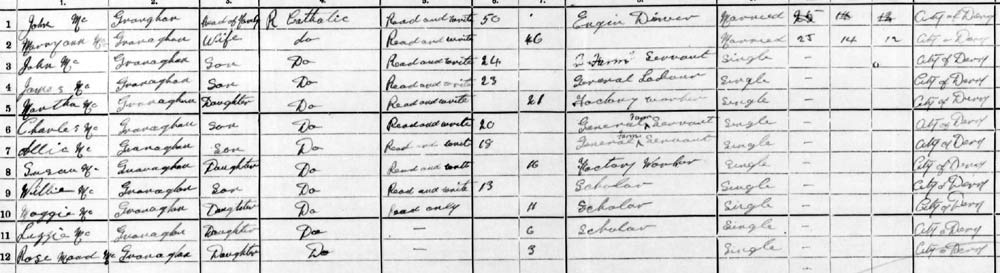 1 John Mc Granaghan Head of Family R Catholic Read and write 50 Engin Driver Married 25 14 12 City of Derry
2 Maryann Mc Granaghan Wife do Read and write 46 Married 25 14 12 City of Derry
3 John Mc Granaghan Son Do Read and write 24 Farm Servant Single — City of Derry
4 James Mc Granaghan Son Do Read and write 23 General Labour Single — City of Derry
5 Martha Mc Granaghan Daughter Do Read and write 21 Factory worker Single — City of Derry
6 Charles Mc Granaghan Son Do Read and write 20 General Farm Servant Single — City of Derry
7 Ollie Mc Granaghan Son Do Read and write 18 General Farm Servant Single — City of Derry
8 Susan Mc Granaghan Daughter Do Read and write 16 Factory Worker Single — City of Derry
9 Willie Mc Granaghan Son Do Read and write 13 Scholar Single — City of Derry
10 Maggie Mc Granaghan Daughter Do Read only 11 Scholar Single — City of Derry
11 Lizzie Mc Granaghan Daughter Do — 6 Scholar Single — City of Derry
12 Rose Maud Mc Granaghan Daughter Do — 3 Single — City of Derry